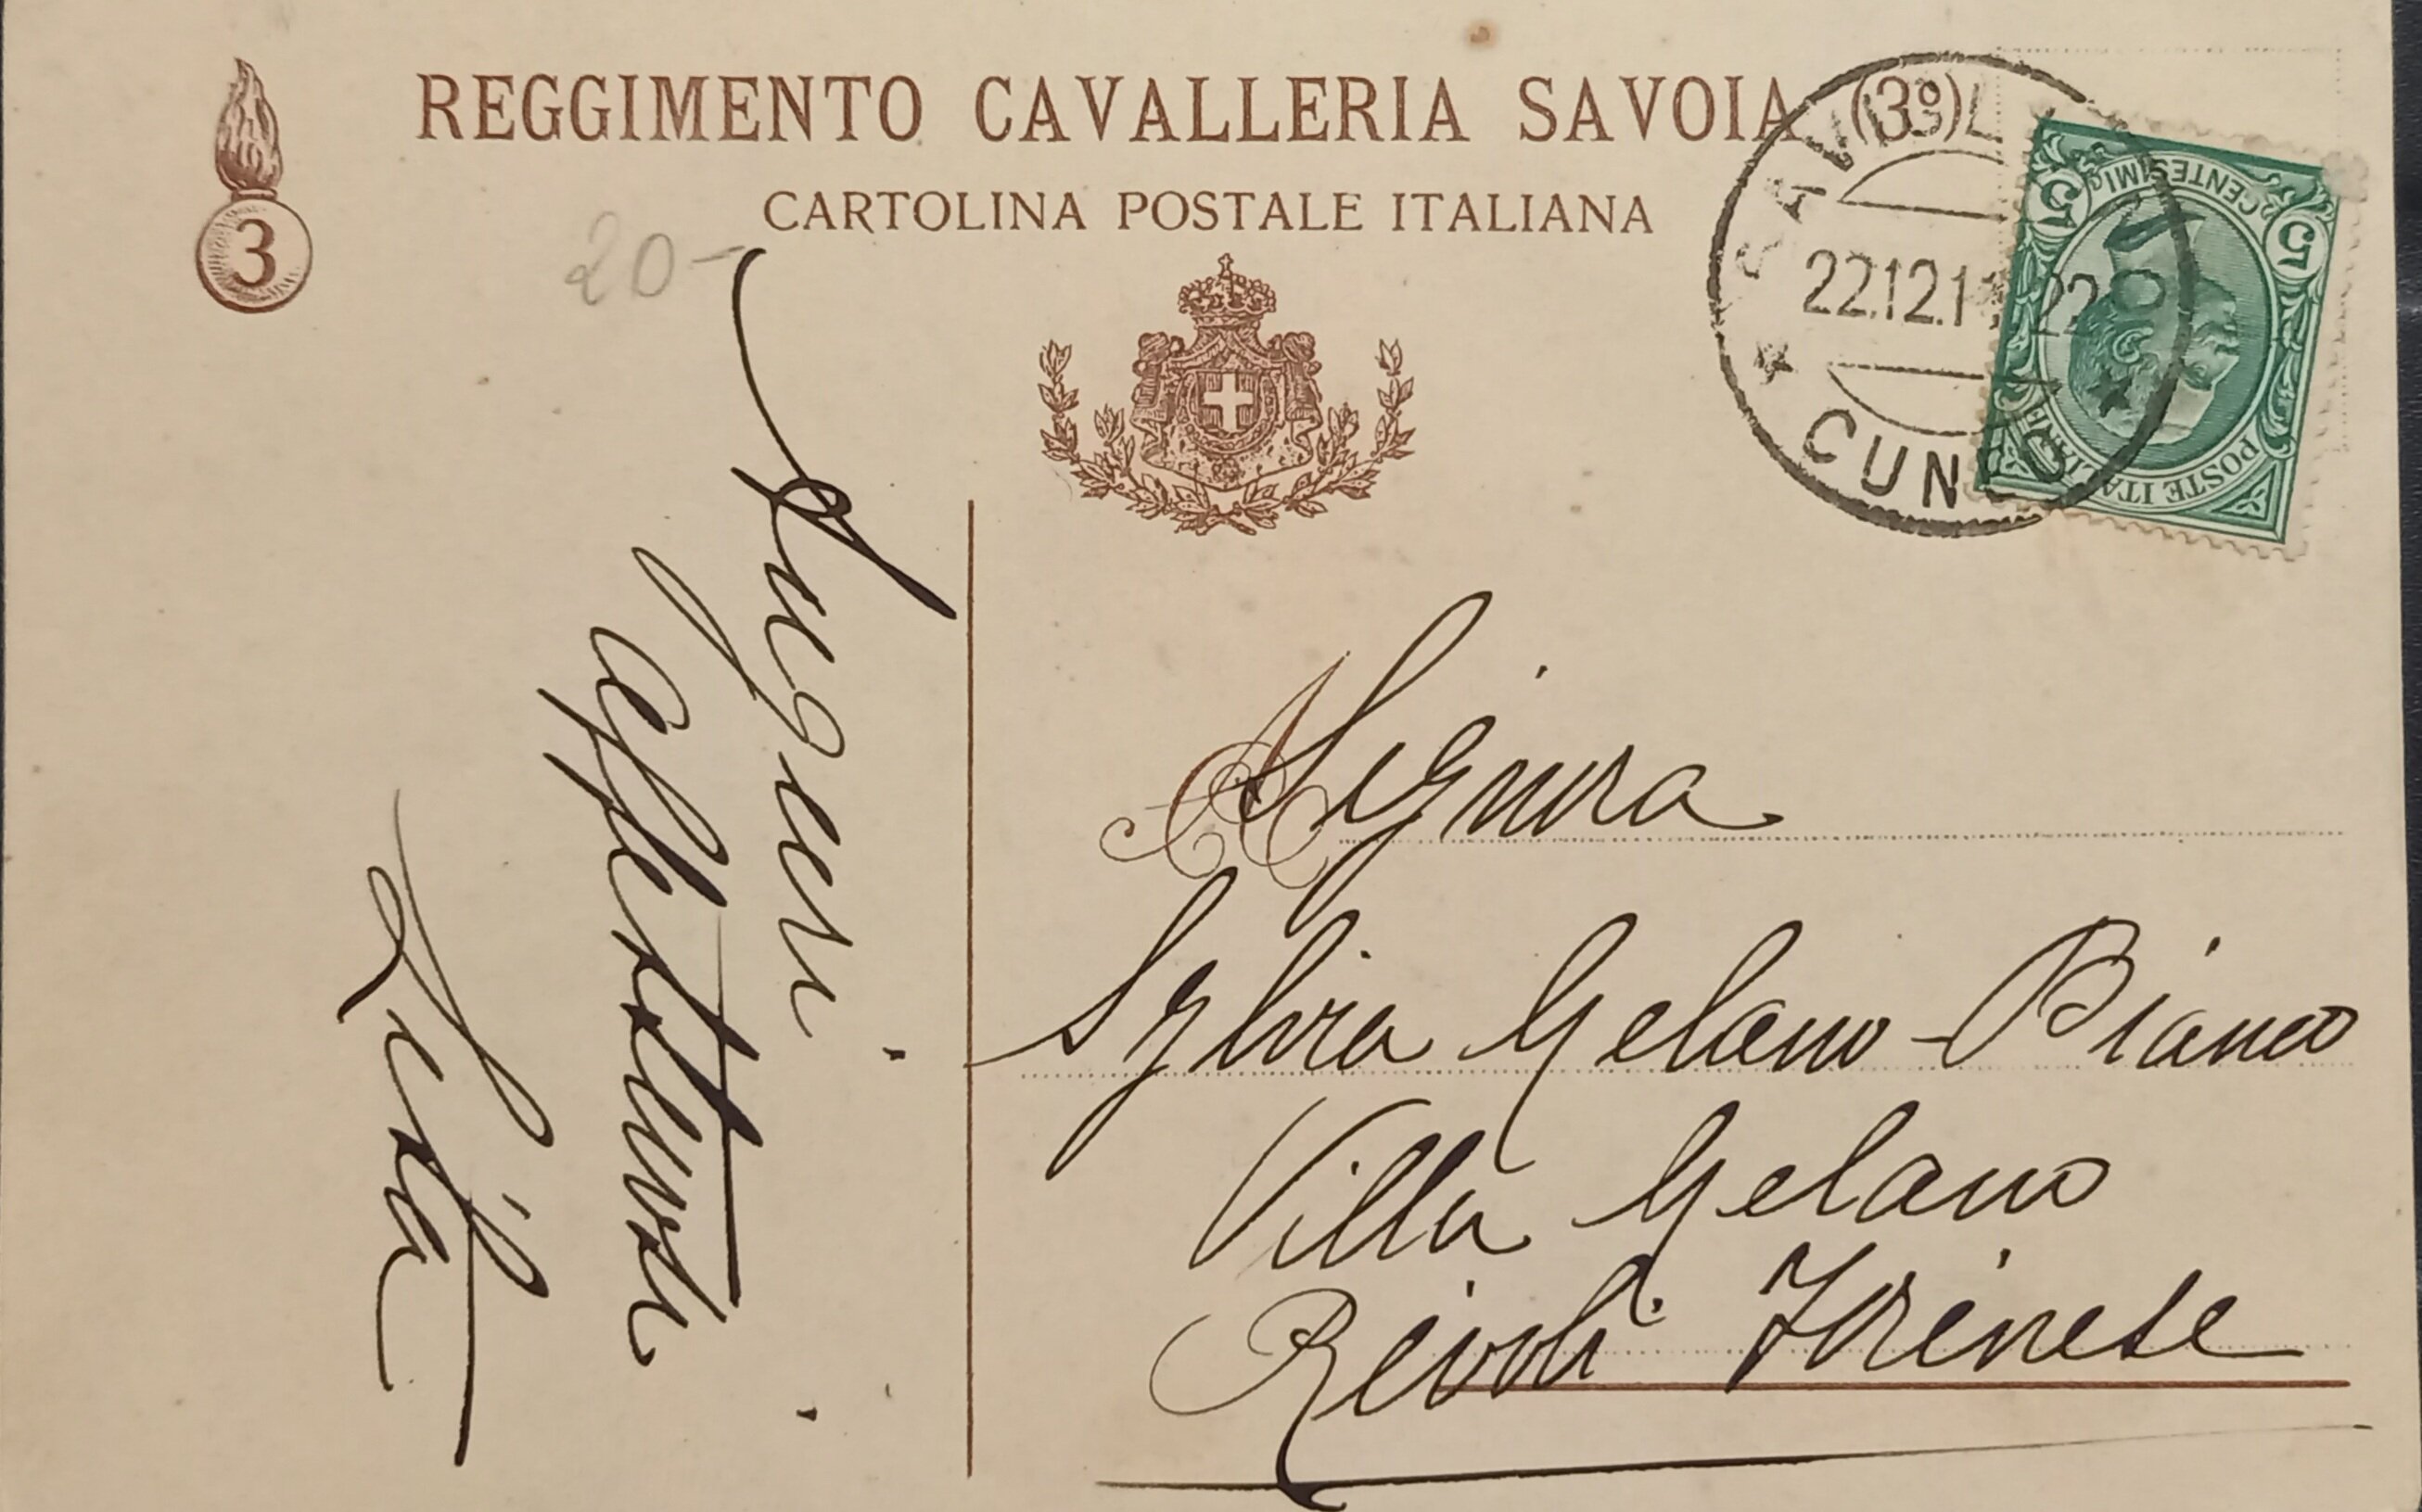 REGGIMENTO CAVALLERIA SAVOIA (3º)
CARTOLINA POSTALE ITALIANA
3
20-
22.12.1
22
CUNEO
5 CENTESIMI 5
POSTE ITALIANE
Auguri
affettuosi
A
Signora
Sylvia Gelano-Bianco
Villa Gelano
Rivoli Torinese